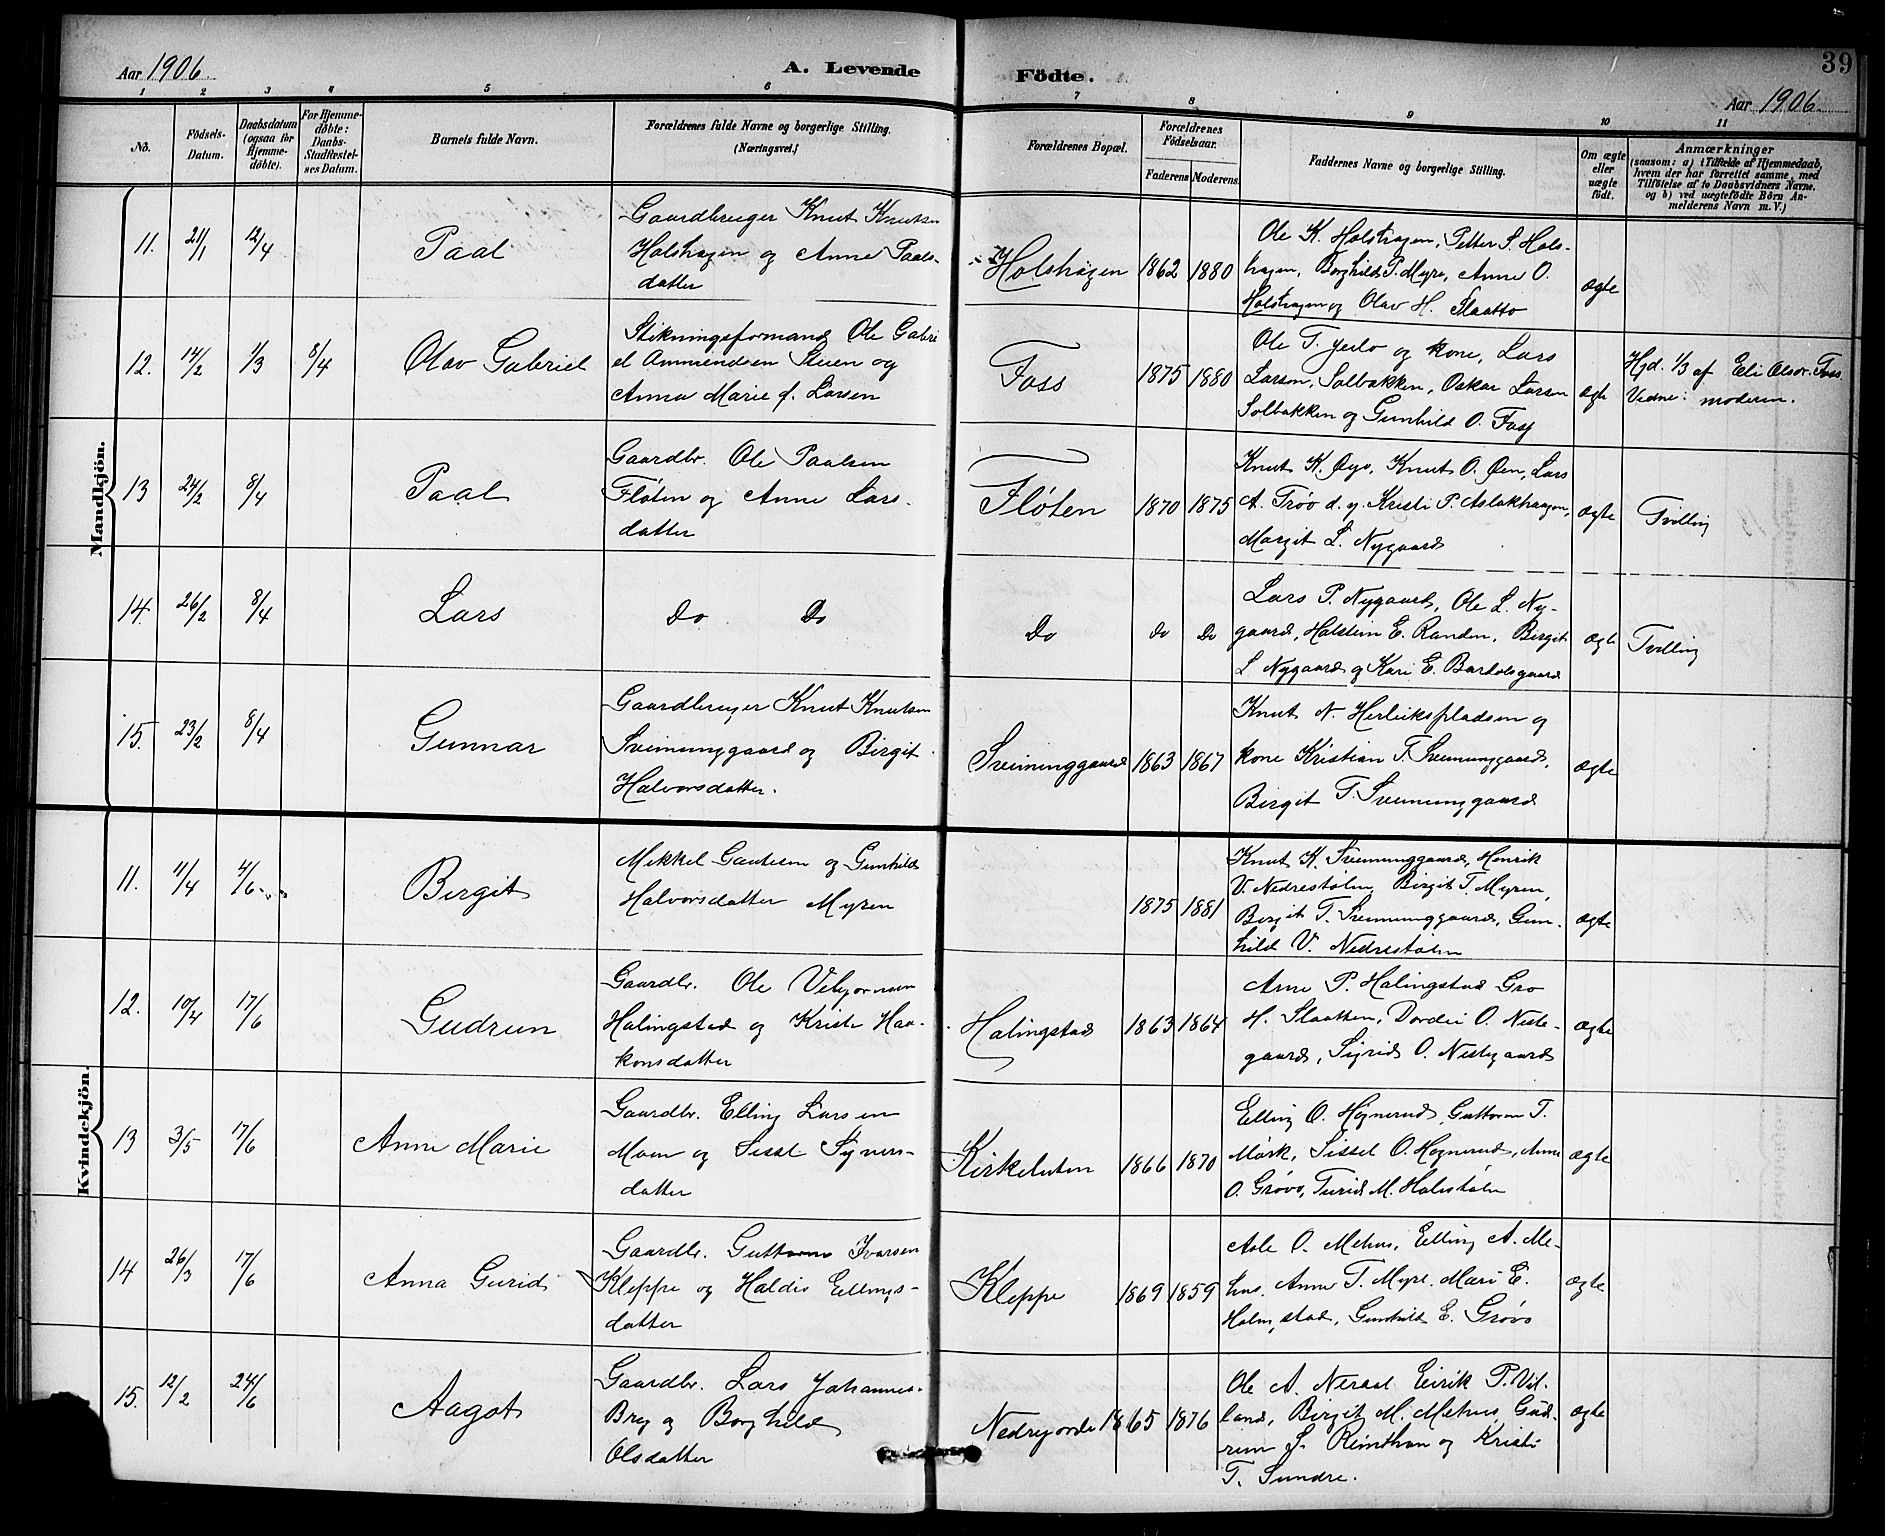 Aar 1906.
A. Levende
Födte.
39
Aar 1906.
1 2 3 4 5 6 7 8 9 10 11
No.
Födsels-
Datum.
Daabsdatum
(ogsaa for
Hjemme-
döbte).
For Hjemme-
döbte:
Daabs-
Stadfæstel-
ses Datum.
Barnets fulde Navn.
Forældrenes fulde Navne og borgerlige Stilling.
(Næringsvei.)
Forældrenes Bopæl.
Forældrenes
Födselsaar.
Faderens Moderens.
Faddernes Navne og borgerlige Stilling.
Om ægte
eller
uægte
födt.
Anmærkninger
(saasom: a) i Tilfælde af Hjemmedaab,
hvem der har forrettet samme, med
Tilföielse af to Daabsvidners Navne,
og b) ved uægtefödte Börn An-
melderens Navn m. V.)
Mandkjön.
11. 21/1 12/4 Paal
Gaardbruger Knut Knutsen
Holshagen og Anne Paals-
datter
Holshagen 1862 1880
Ole K. Holshagen, Petter S. Hols-
hagen, Borghild P. Myre, Anne O.
Holshagen og Olav H. Slaatto
ægte
12. 14/2 1/3 8/4 Olav Gabriel
Stikningsformand Ole Gabri
el Ammundsen Stuen og
Anna Marie f. Larsen
Foss 1875 1880
Ole T. Jeilo og kone, Lars
Larsen, Solbakken, Oskar Larsen
Solbakken og Gunhild O. Foss
ægte
Hjd. 1/3 af Eli Olsdr. Foss.
Vidne: moderen.
13 24/2 8/4 Paal
Gaardbr. Ole Paalsen
Fløten og Anne Lars-
datter
Fløten 1870 1875
Knut K. Øyo, Knut O. Øen, Lars
A. Trøo d. y. Kristi P. Aslakhaagen,
Margit L. Nygaard
ægte
Tvilling
14. 26/2 8/4 Lars
Do Do
Do Do Do
Lars P. Nygaard, Ole L. Ny-
gaard, Halstein E. Randen, Birgit
L Nygaard og Kari E. Bardolsgaard
ægte
Tvilling
15. 23/2 8/4 Gunnar
Gaardbruger Knut Knutsen
Sveinunggaard og Birgit
Halvorsdatter.
Sveinunggaard 1863 1867
Knut N. Herleikspladsen og
kone Kristian T. Sveinunggaard,
Birgit T. Sveinunggaard
ægte
Kvindekjön.
11. 11/4 4/6 Birgit
Mikkel Gautesen og Gunhild
Halvorsdatter Myren
1875 1881
Knut K. Sveinunggaard, Henrik
V. Nedrestølen, Birgit T. Myren,
Birgit T. Sveinunggaard, Gun-
hild V. Nedrestølen
ægte
12. 10/4 17/6 Gudrun
Gaardbr. Ole Vebjørnsen
Halingstad og Kristi Haa-
konsdatter
Halingstad 1863 1864
Arne P. Halingstad Gro
H. Slaatten, Dordei O. Neste-
gaard, Sigrid O. Nestegaard
ægte
13 3/5 17/6 Anne Marie
Gaardbr. Elling Larsen
Moen og Sissel Syvers-
datter
Kirkeluten 1866 1870
Elling O. Høgnerud, Guttorm T.
Mørk, Sissel O. Høgnerud, Anne
O. Grøvo, Turid M. Halestølen
ægte
14 26/3 17/6 Anna Guridi
Gaardbr. Guttorm Ivarsen
Kleppe og Haldis Ellings-
datter
Kleppe 1869 1859
Asle O. Mehus, Elling A. Me-
hus, Anne T. Myre, Mari E.
Holmstad, Gunhild E. Grøvo
ægte
15. 12/2 24/6 Aagot
Gaardbr. Lars Johannes-
Bry og Borghild
Olsdatter
Nedrejorde 1865 1876
Ole A. Neraal Eirik P. Vil-
land, Birgit M. Mehus, Gud-
run S. Reinthon og Kristi
T. Sundre.
ægte